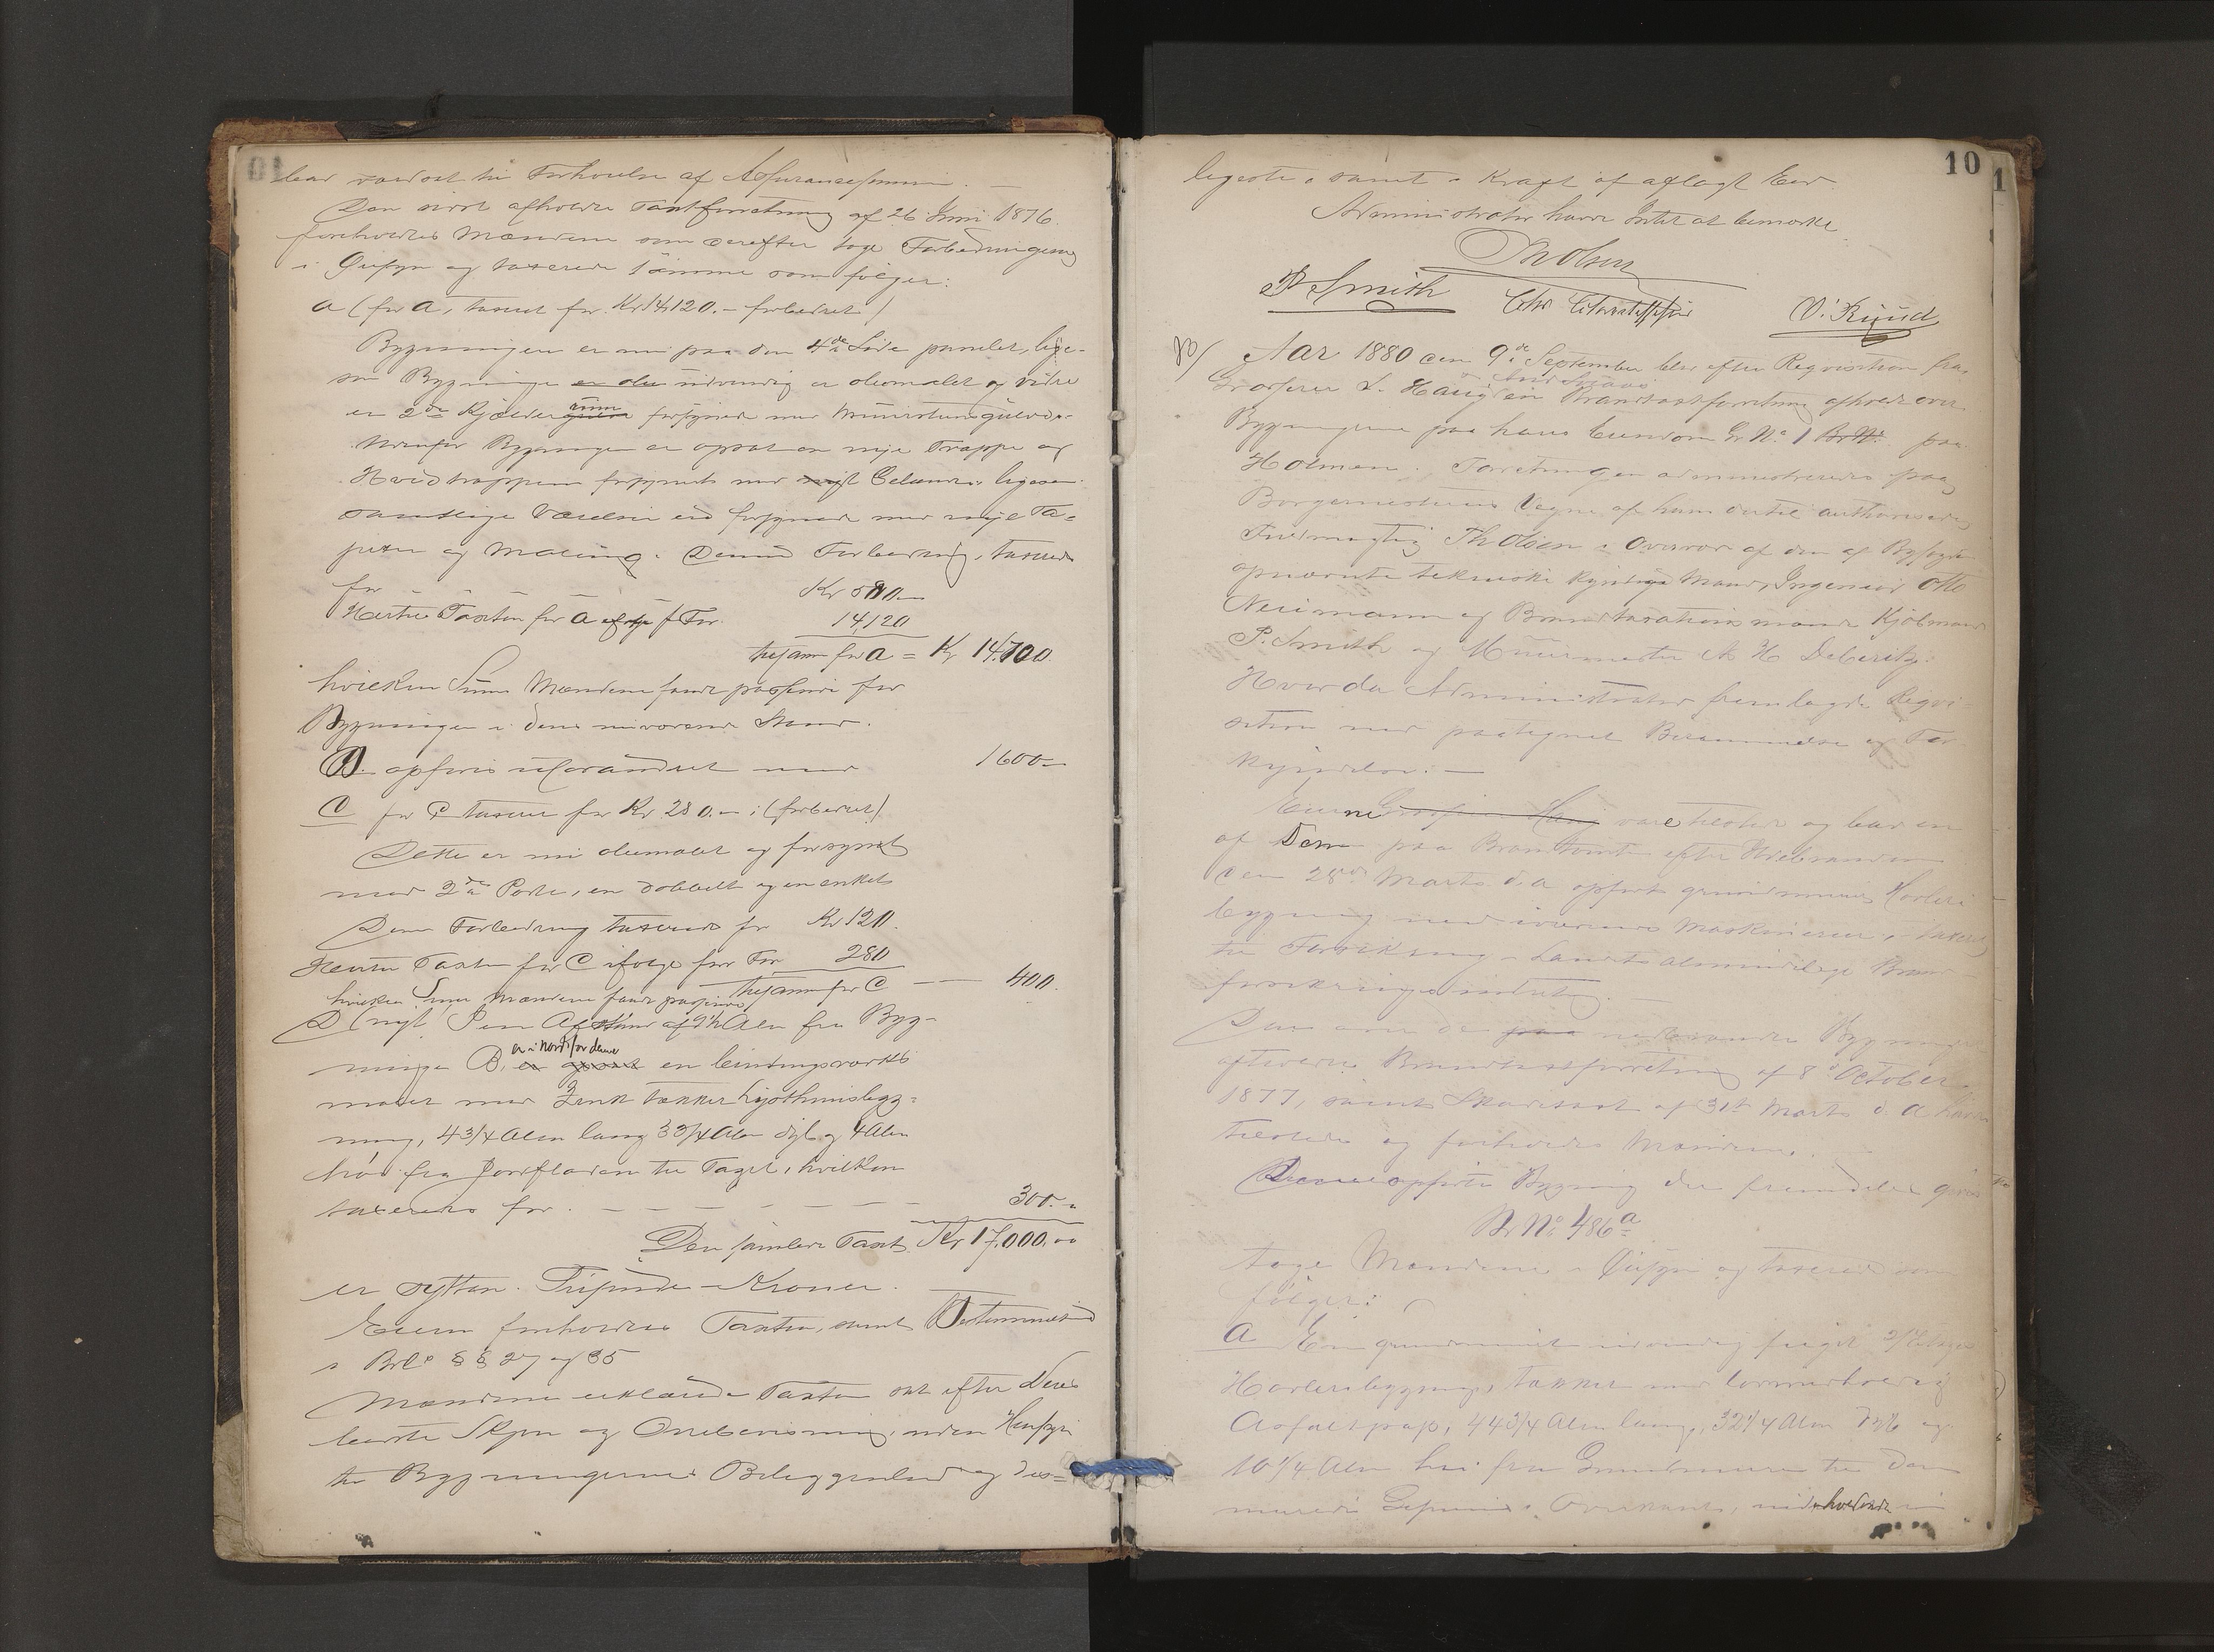 bad værdsat til Forhøielse af Assurancesummen. —
Den sidst afholdte Taxtforretning af 26 Juni 1876
foreholdtes Mændene som derefter toge Forbedringerne
i Øiesyn og taxerede samme som følger:
a (før a, taxeret for Kr 14,120.- forbedret)
Bygningen er nu paa den 4de Side panelet, lige-
som Bygningen er den udvendig er oliemalet og videre
er 2de Kjælderrum forsynede med Muurstensgulve.
Udenfor Bygningen er opsat en nye Trappe og
Hovedtrappen forsynet med nyt Gelænder ligesom
samtlige Værelser ere forsynede med nye Ta=
peter og Maling. Denne Forbedring, taxeredes
for Kr 580.—
Hertil Taxten for a ifølge f For. 14,120
tilsammen for a = Kr 14,700.
hvilken Sum Mændene fandt passende for
Bygningen i dens nuværende Stand.
B. opføres uforandret med 1600.—
C før C taxeret for Kr 280.— (forbedret)
Dette er nu oliemalet og forsynet
med 2de Porte, en dobbelt og en enkelt
Denne Forbedring taxeredes for Kr 120.
Hertil Taxten for C ifølge før For 280
tilsammen for C — 400.
hvilken Sum Mændene fandt passende
D (nyt) I en Afstand af 9½ Alen fra Byg-
ningen B, er i Nord for denne er opsat en bindingsværks
muret med Zink tækket Lysthuusbyg=
ning, 4 3/4 Alen lang 3 3/4 Alen dyb og 4 Alen
høi fra Jordfladen til Taget, hvilken
taxeredes for. — — — — — 300.—
Den samlede Taxt Kr 17,000.00
er sytten Tusinde Kroner.
Eieren foreholdtes Taxten, samt Bestemmelserne
i Brl. §§ 27 og 35
Mændene erklærede Taxten sat efter deres
bedste Skjøn og Overbevisning, uden Hensyn
til Bygningernes Beliggenhed og des=
10
ligeste, samt i Kraft af aflagt Eed.
Administrator havde Intet at bemærke
Th Olsen
P Smith Chr Christophersen O. Ruud
Aar 1880 den 9de September blev efter Requisition fra
Grosserer S. Haug en Brandtaxtforretning afholdt over
Bygningerne paa hans Eiendom Gr No. 1 Br No. paa
Holmen. Forretningen administreredes paa
Borgermesterens Vegne af ham dertil authoriserede
Fuldmægtig Th Olsen i Overvær af den af Byfogden
opnævnte tekniske kyndige Mand, Ingeniør Otto
Neumann og Brandtaxationsmænd Kjøbmand
P. Smith og Muurmester A H Deberitz.
Hvorda Administrator fremlagde Reqvi-
sition med paategnet Berammelse og For
kyndelse. —
Eierne Grosserer Haug vare tilstede og bad en
af Dem paa Brandtomten efter Ildebranden
den 28de Marts d. a. opført grundmuret Høvleri
bygning med iværende Maskinerier taxeret
til Forsikring i Landets almindelige Brand-
forsikringsindretning. —
Den over de paa nedbrændte Bygninger
afholdte Brandtaxtforretning af 8de October
1877, samt Skadetaxt af 31te Marts d. A. havdes
tilstede og foreholdtes Mændene.
Denne opførte Bygning der fremdeles gives
Br No. 486a
toge Mændene i Øiesyn og taxerede som
følger:
a En grundmuret udvendig fuget 2 Etages
Høvleribygning, tækket med
Asfaltpap, 44 3/4 Alen lang, 32 1/4 Alen dyb og
10 1/4 Alen høi fra Grundmuren til den
murede Gesims Overkant, indeholdende